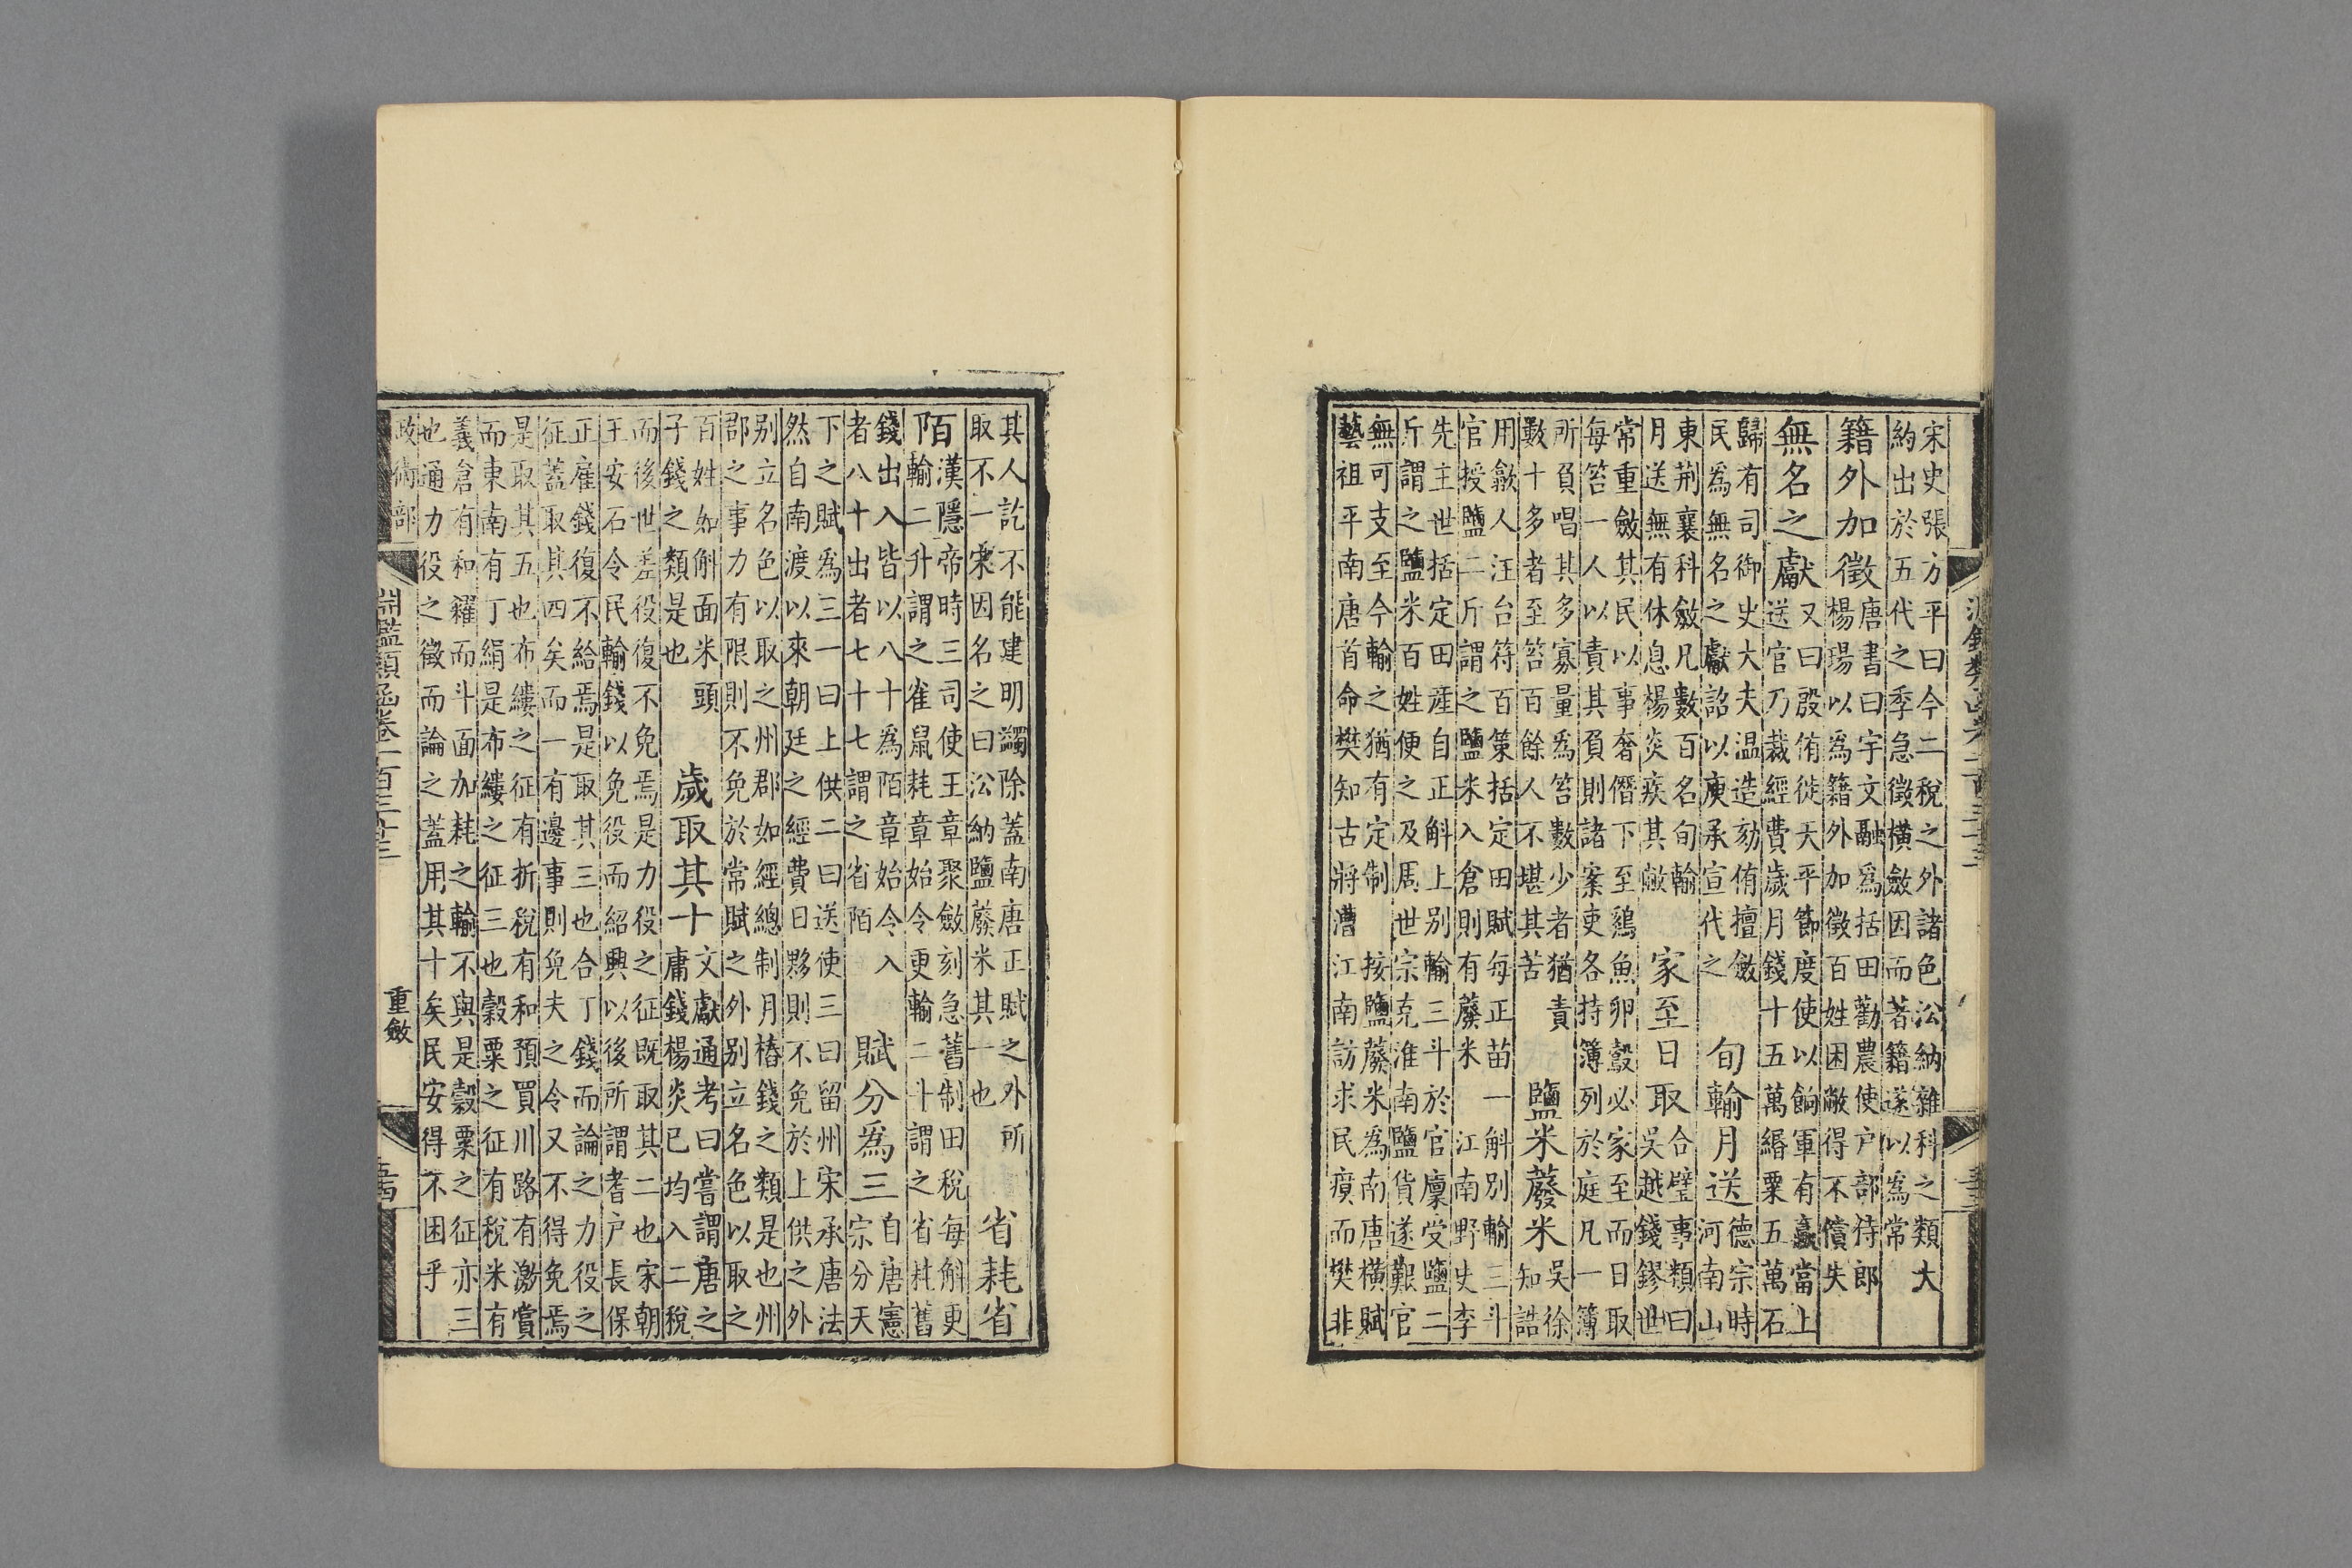 宋史張方平曰今二稅之外諸色㳂納雜科之類大
約出於五代之季急徵橫斂因而著籍遂以爲常
籍外加徵
唐書曰宇文融爲括田勸農使户部侍郎
楊瑒以爲籍外加徵百姓困敝得不償失
無名之獻
又曰殷侑徙天平節度使以餉軍有羸當上
送官乃裁經費歲月錢十五萬緡粟五萬石
歸有司御史大夫温造劾侑擅斂
民爲無名之獻詔以庾承宣代之
旬輸月送
德宗時
河南山
東荆襄科斂凡數百名旬輸
月送無有休息楊炎疾其敝
家至日取
合璧事類曰
吳越錢鏐世
常重斂其民以事奢僭下至鷄魚卵鷇必家至而日取
每笞一人以責其負則諸案吏各持簿列於庭凡一簿
所負唱其多寡量爲笞數少者猶責
數十多者至笞百餘人不堪其苦
鹽米䕠米
吳徐
知誥
用歙人汪台符百策括定田賦每正苗一斛別輸三斗
官授鹽二斤謂之鹽米入倉則有䕠米 江南野史李
先主世括定田産自正斛上别輸三斗於官廪受鹽二
斤謂之鹽米百姓便之及周世宗克淮南鹽貨遂艱官
無可支至今輸之猶有定制 按鹽䕠米爲南唐橫賦
藝祖平南唐首命樊知古將漕江南訪求民瘼而樊非
其人訖不能建明蠲除蓋南唐正賦之外所
取不一宋因名之曰㳂納鹽䕠米其一也
省耗省
陌
漢隱帝時三司使王章聚斂刻急舊制田稅每斛更
輸二升謂之雀鼠耗章始令更輸二斗謂之省耗舊
錢出入皆以八十爲陌章始令入
者八十出者七十七謂之省陌
賦分爲三
自唐憲
宗分天
下之賦爲三一曰上供二曰送使三曰留州宋承唐法
然自南渡以來朝廷之經費日夥則不免於上供之外
别立名色以取之州郡如經總制月樁錢之類是也州
郡之事力有限則不免於常賦之外别立名色以取之
百姓如斛面米頭
子錢之類是也
歲取其十
文獻通考曰嘗謂唐之
庸錢楊炎已均入二稅
而後世差役復不免焉是力役之征既取其二也宋朝
王安石令民輸錢以免役而紹興以後所謂耆户長保
正雇錢復不給焉是取其三也合丁錢而論之力役之
征蓋取其四矣而一有邊事則免夫之令又不得免焉
是取其五也布縷之征有折稅有和預買川路有激賞
而東南有丁絹是布縷之征三也穀粟之征有稅米有
義倉有和糴而斗面加耗之輸不與是穀粟之征亦三
也通力役之徵而論之蓋用其十矣民安得不困乎
政術部
淵鑑類函卷一百三十三
重斂